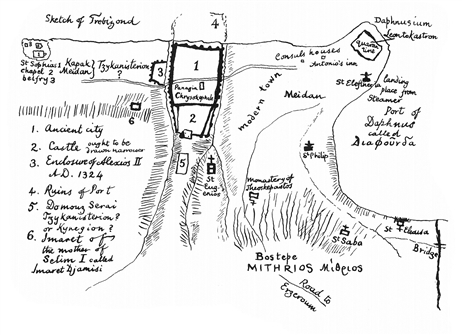 Sketch of Trebizond
4
Daphnusium
Leontokastron
quaran
tine
St Sophias 1
chapel 2
belfry 3
Kapak
Meidan
Tzykanisterion
?
3
1
Consuls houses
Antonio's inn
Panagia
Chrysokephalos
St Eleftherios
landing
place from
Steamer
Port of
Daphnus
called
6
2
modern town
Meidan
1. Ancient city
2. Castle ought to be
drawn narrower
3. Enclosure of Alexios II
A.D. 1324
4. Ruins of Port
5. Domouz Serai
Tzykanisterion?
or Kynegion?
6. Imaret of
the mother of
Selim I called
Imaret Djamisi
5
St
Eugenios
St Philip
monastery of
Theoskepastos
St Saba
St
Bridge
Bostepe
MITHRIOS Μίθριος
Road to
Erzeroum